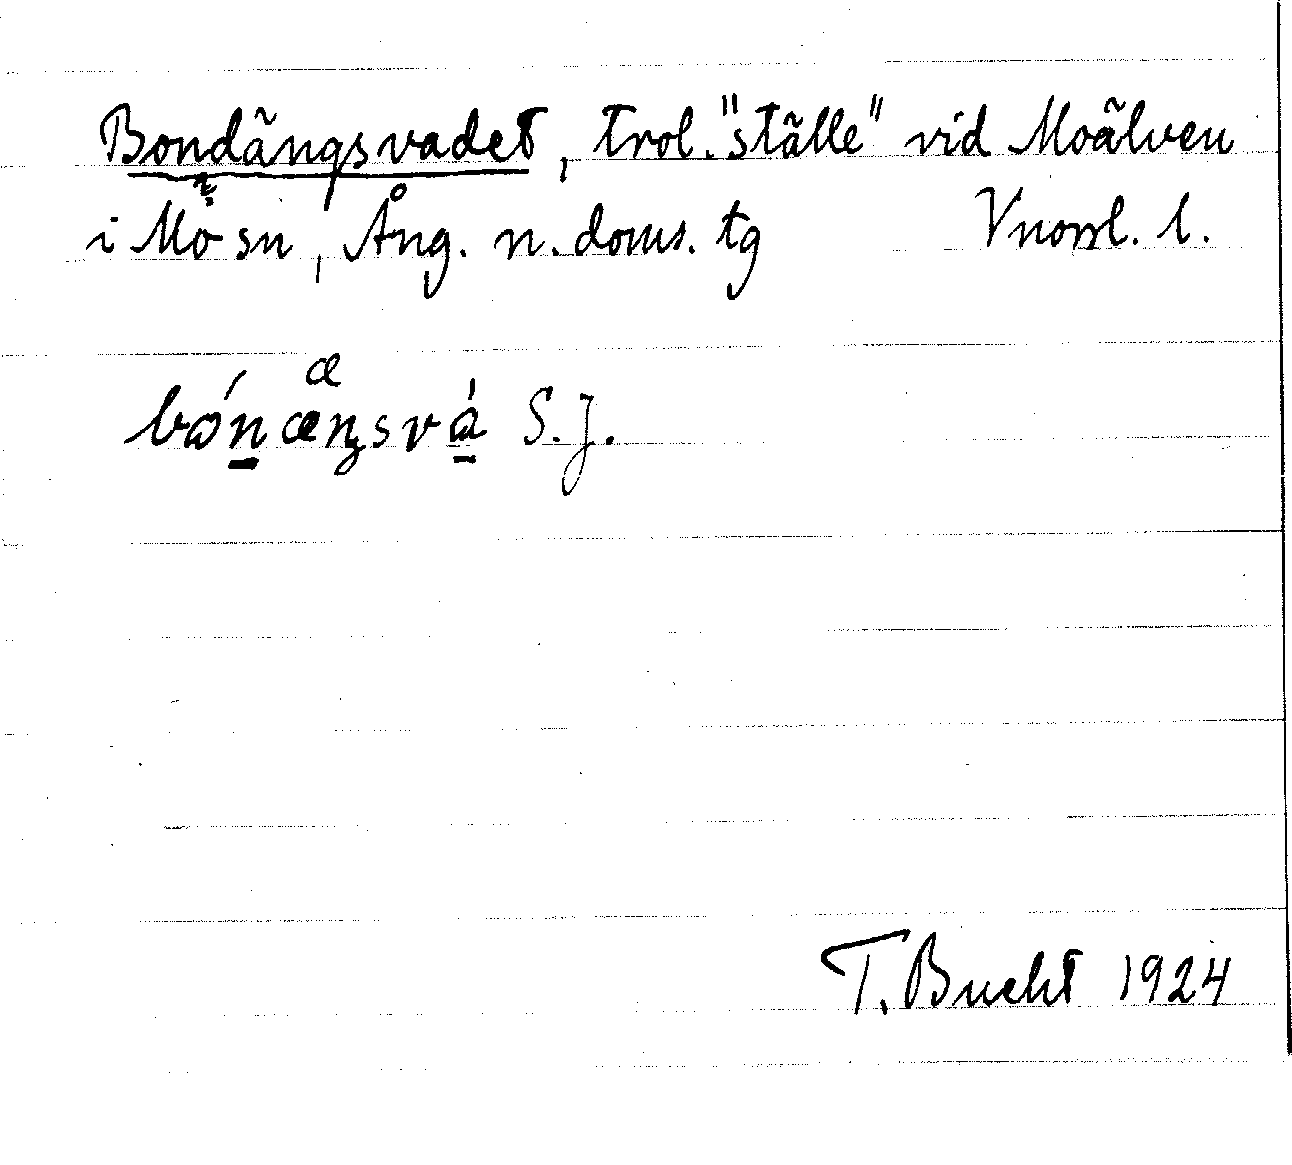 Bondängsvadet, trol. "ställe" vid Moälven
i Mo sn, Ång. n. doms. tg Vnorrl. l.
æ
bónæŋsvá S.J.
T. Bucht 1924